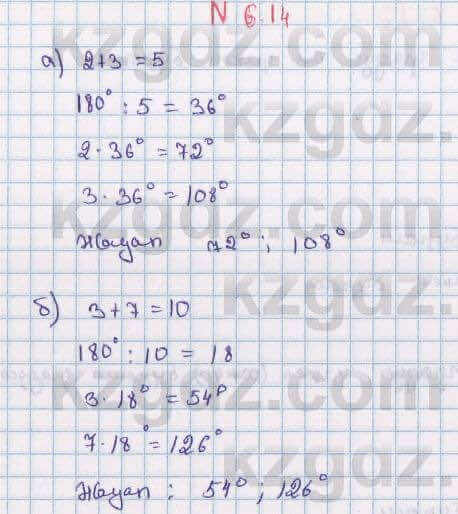 N 6.14
а) 2+3 = 5
180° : 5 = 36°
2 · 36° = 72°
3 · 36° = 108°
Жауап 72° ; 108°
б) 3 + 7 = 10
180° : 10 = 18
3 · 18° = 54°
7 · 18° = 126°
Жауап : 54° ; 126°
kzgdz.com
kzgdz.com
kzgdz.com
kzgdz.com
kzgdz.com